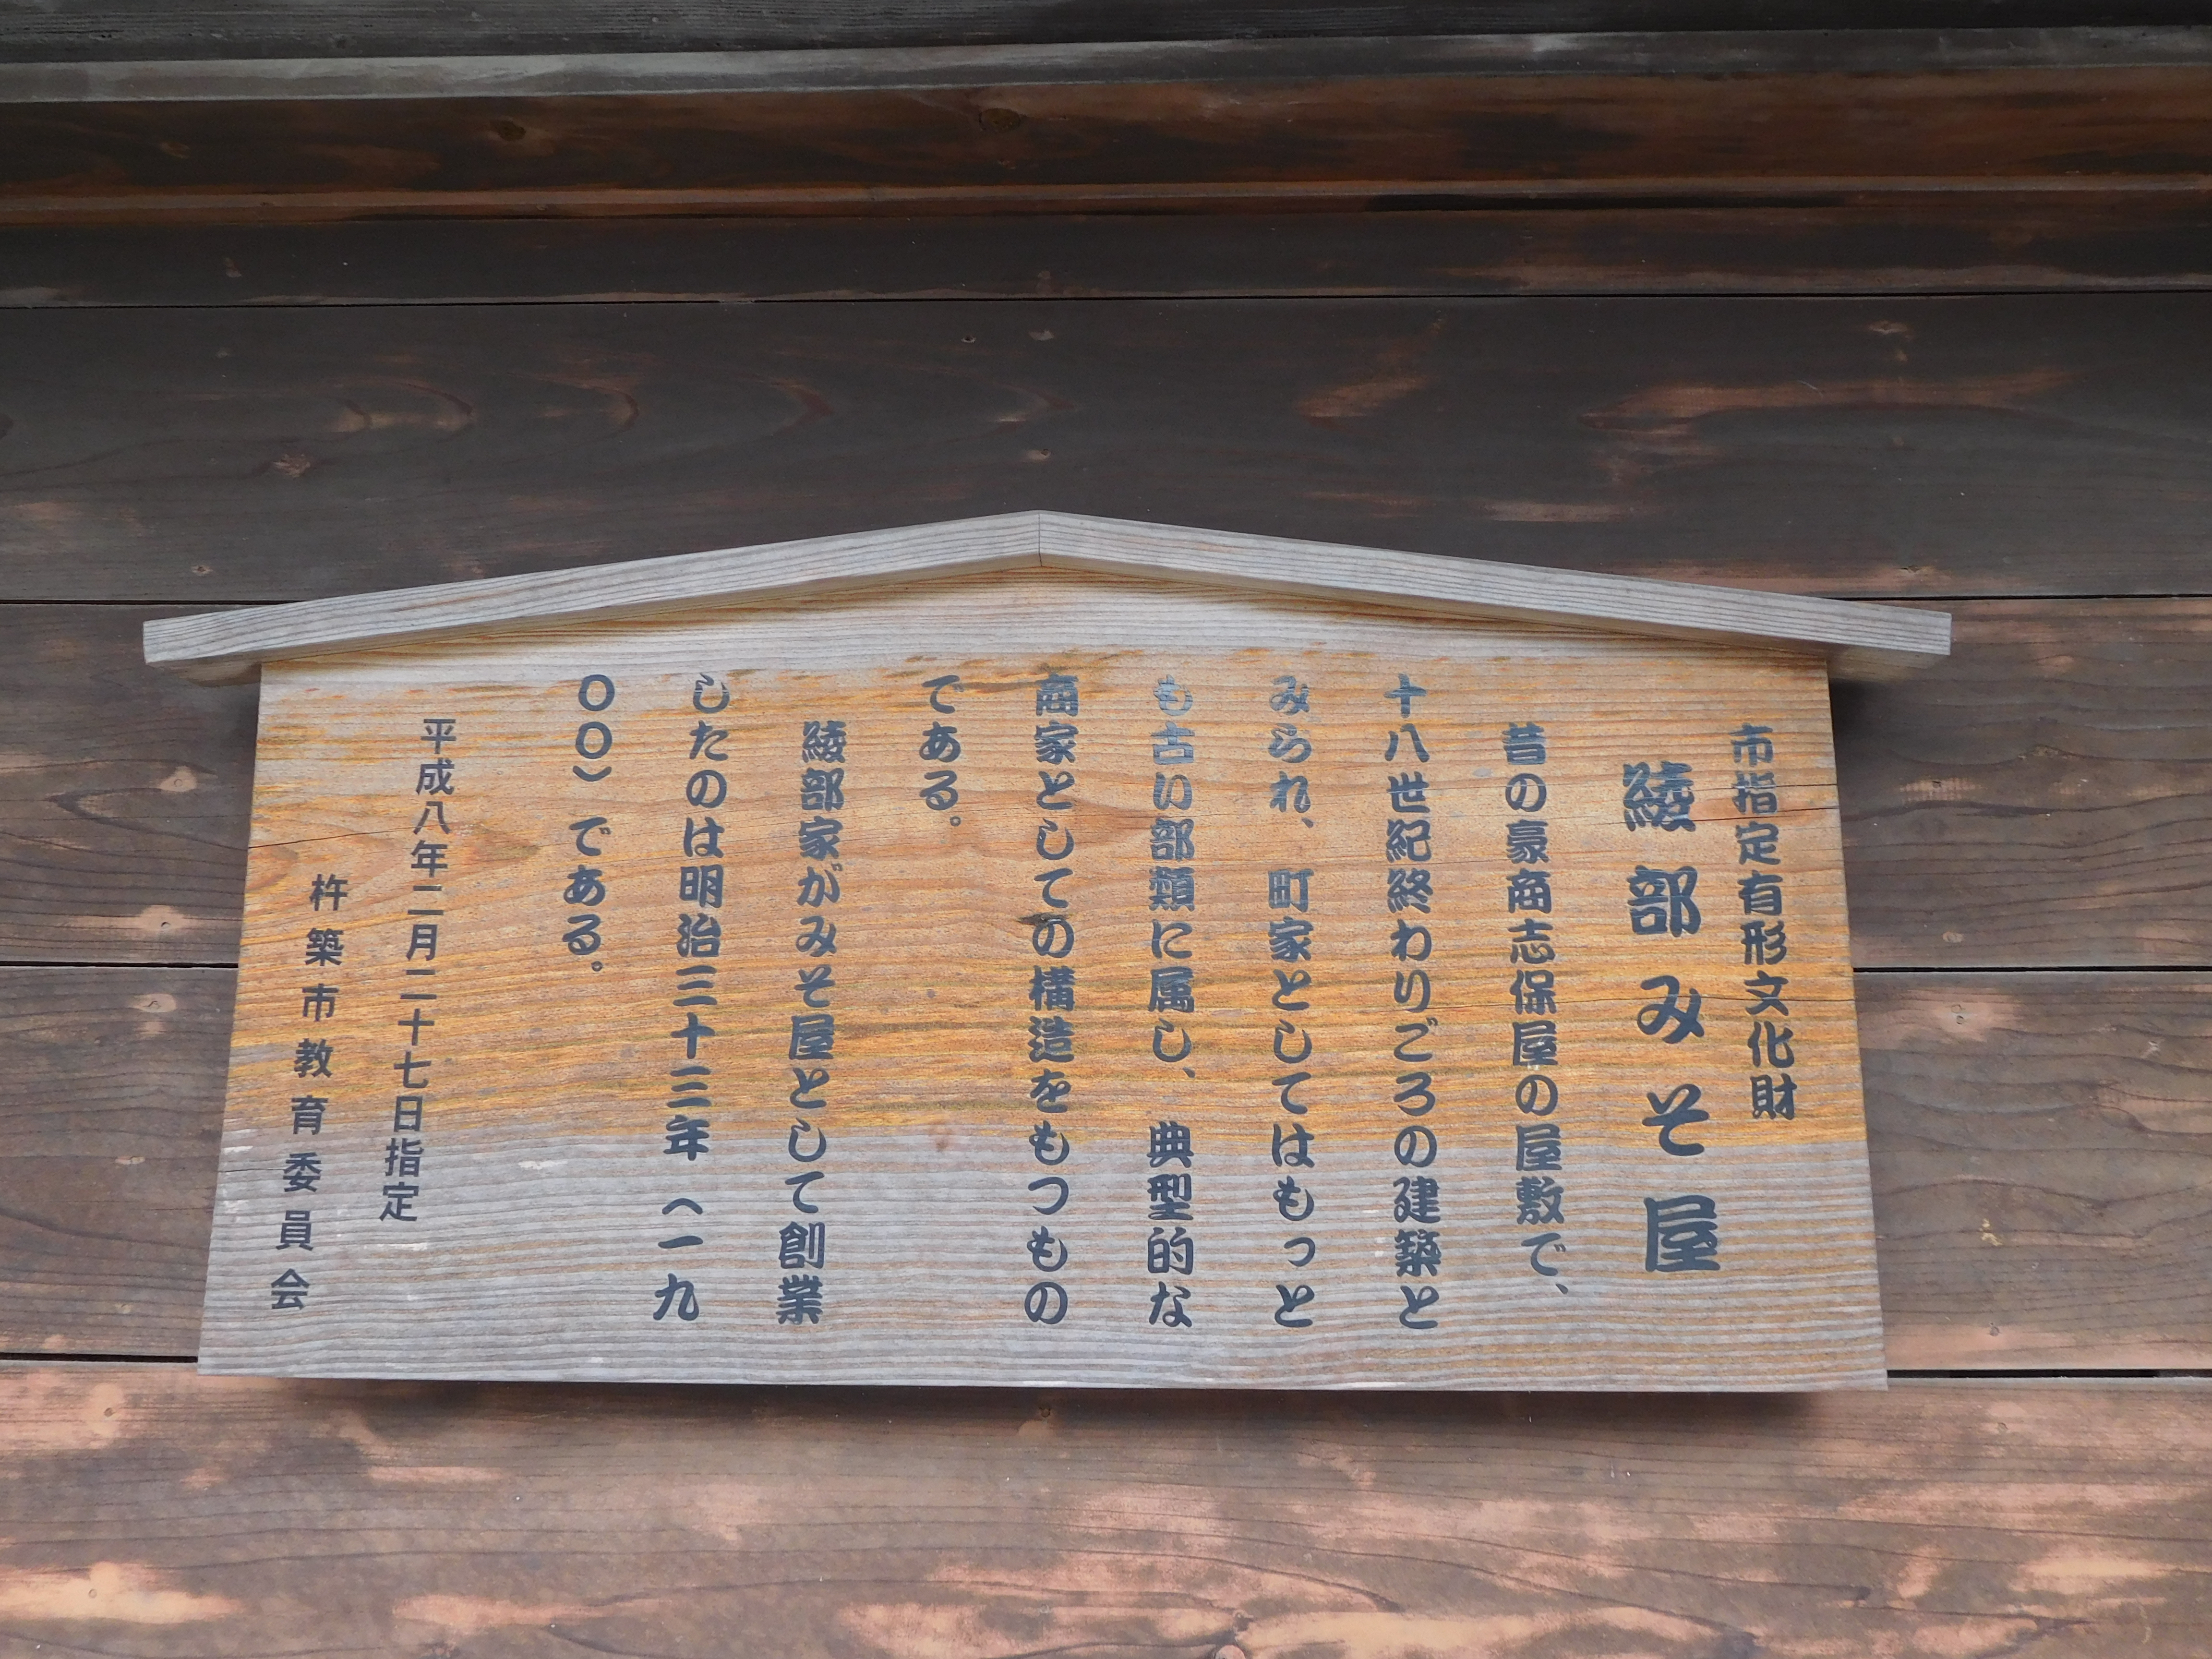 市指定有形文化財
綾部みそ屋
昔の豪商志保屋の屋敷で、
十八世紀終わりごろの建築と
みられ、町家としてはもっと
も古い部類に属し、典型的な
商家としての構造をもつもの
である。
綾部家がみそ屋として創業
したのは明治三十三年（一九
〇〇）である。
平成八年二月二十七日指定
杵築市教育委員会